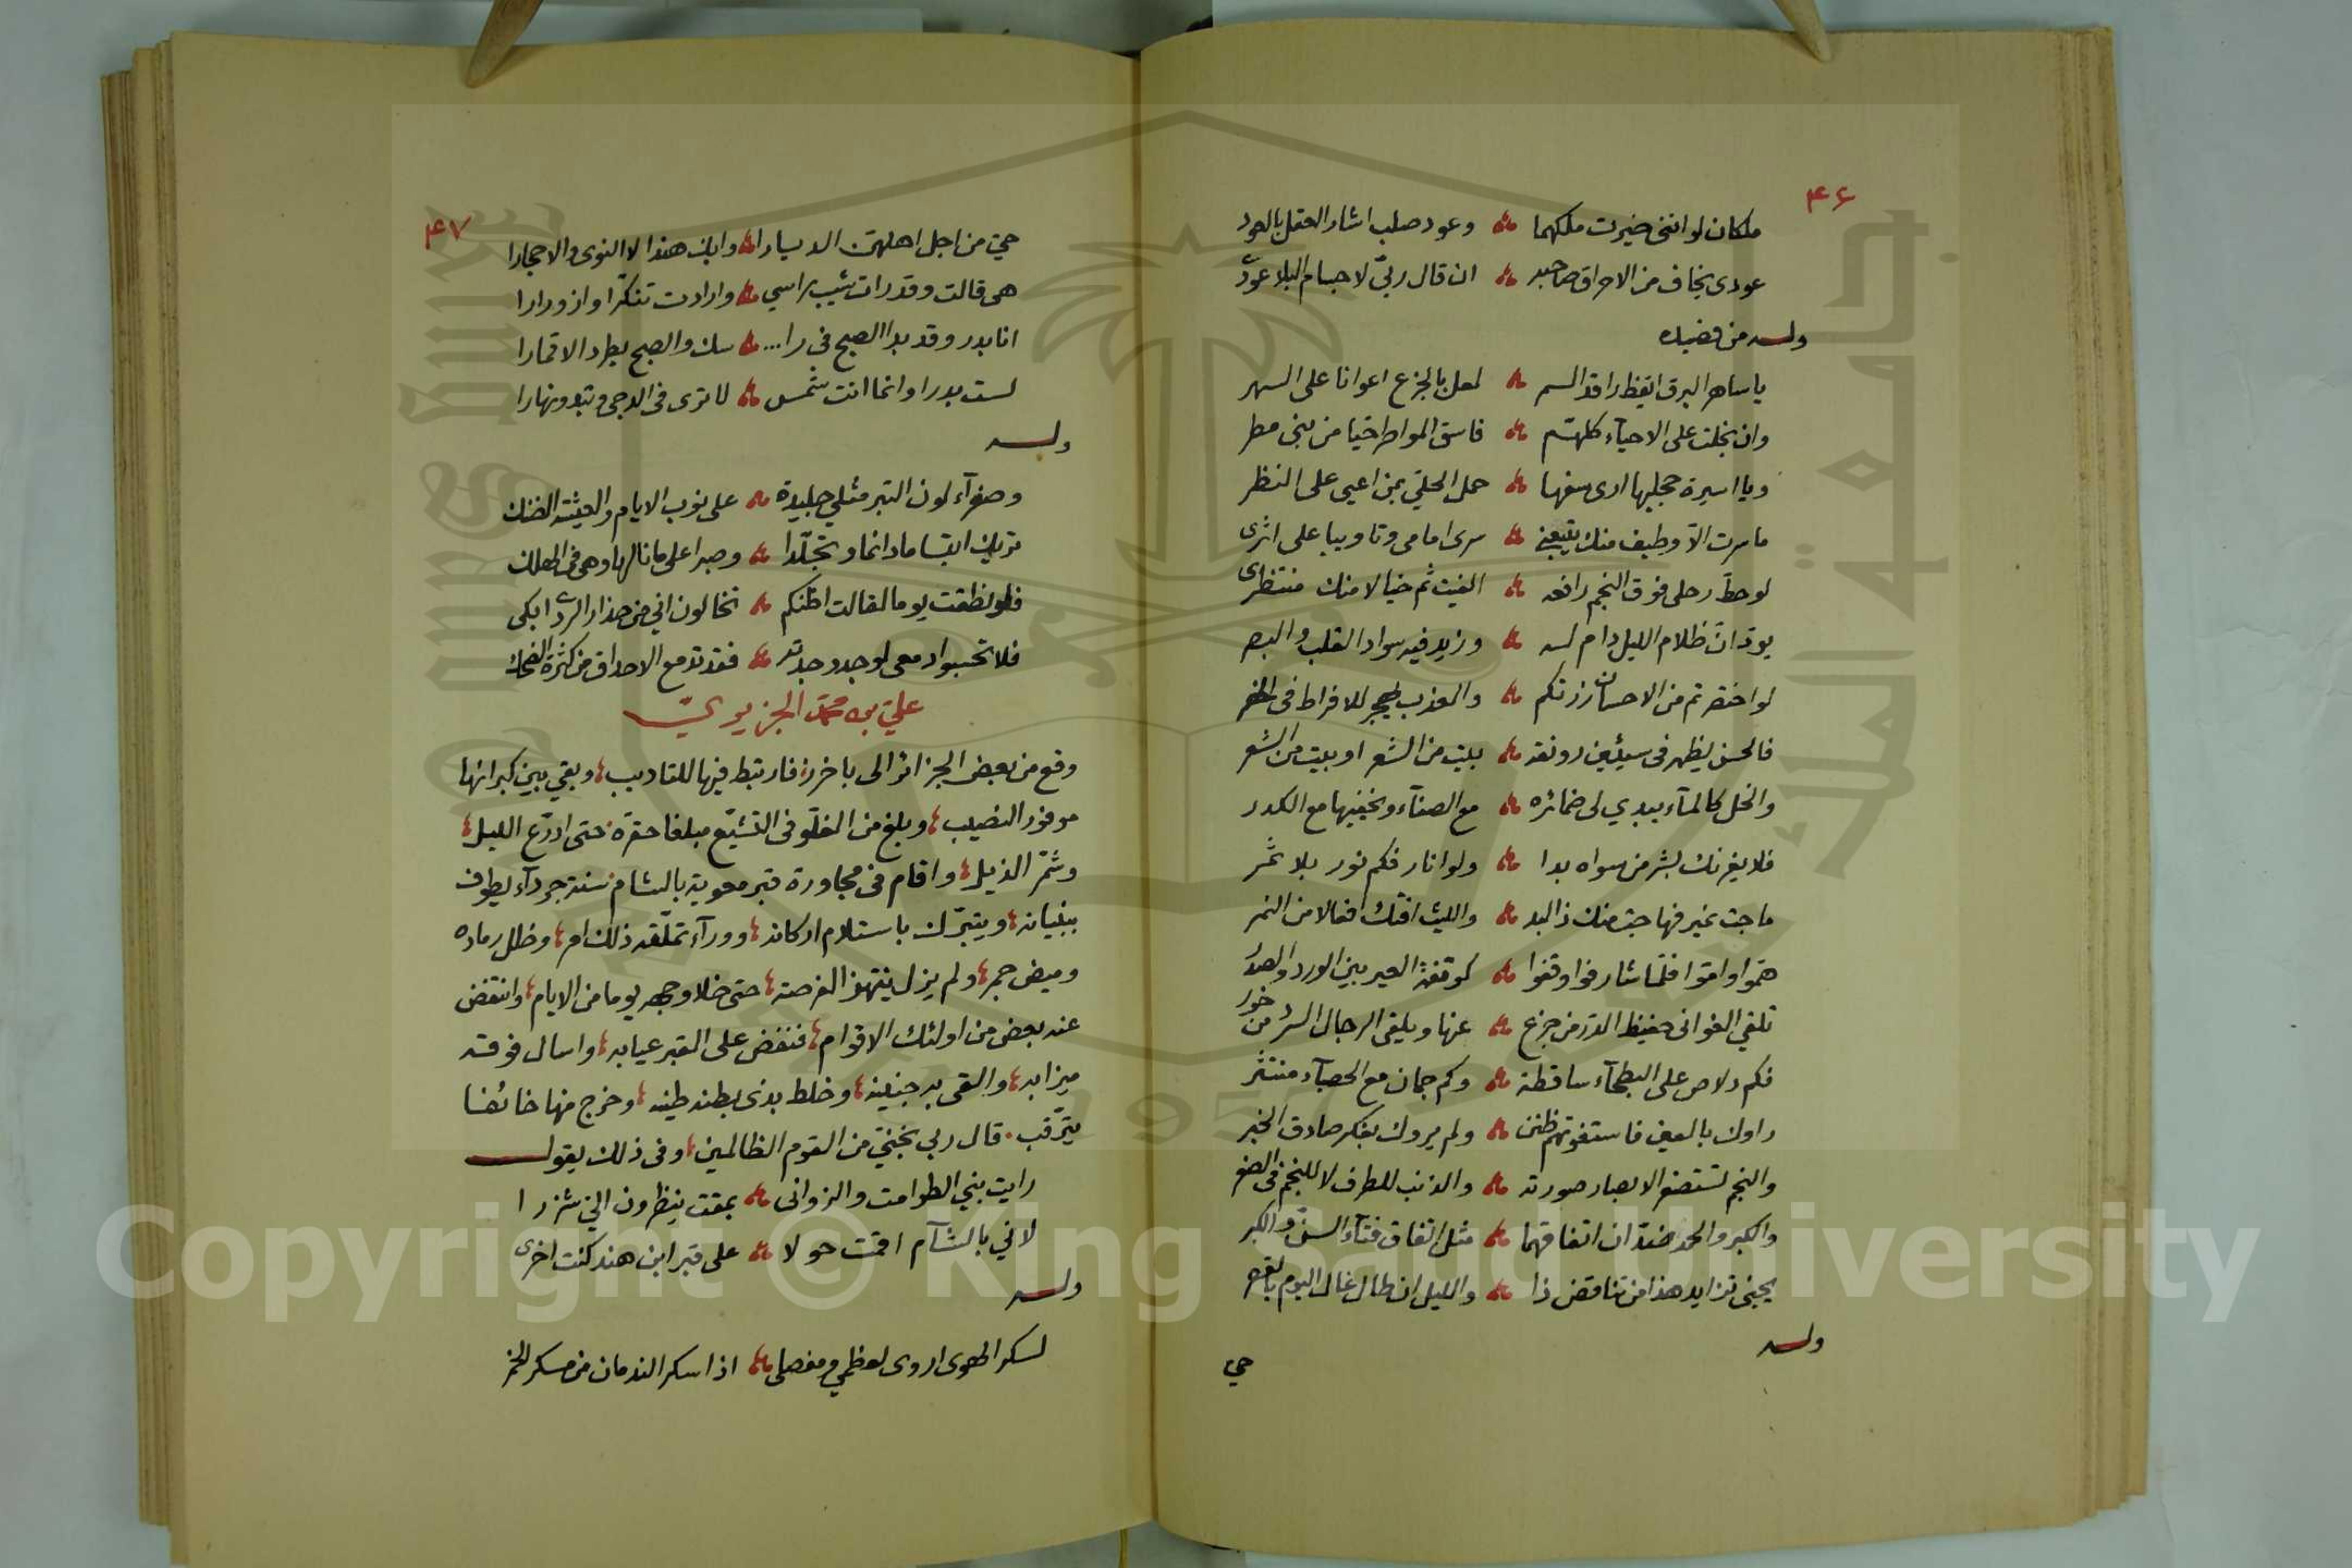 ۴۶
ملكان لو انني خيرت ملكهما ؞ وعود صلب اشار العقل بالعود
عودى يخاف من الاحراق صاحبه ؞ ان قال ربيّ لاجسام البلا عودى
وله من قصيدة
يا ساهر البرق ايقظ راقد السمر ؞ لعل بالجزع اعوانا على السهر
وان بخلت على الاحياء كلهم ؞ فاسق المواطر حيا من بني مطر
ويا اسيرة حجليها ارى سفها ؞ حمل الحلي بمن اعيى على النظر
ما سرت الا وطيف منك يتبعني ؞ سرى امامى وتاويبا على اثرى
لو حط رحلى فوق النجم رافعه ؞ الفيت ثم خيالا منك منتظرى
يود ان ظلام الليل دام له ؞ وزيد فيه سواد القلب والبصر
لو اختصرتم من الاحسان زرتكم ؞ والعذب يهجر للافراط فى الخصر
فالحسن يظهر فى سيئين رونقه ؞ بيت من الشعر او بيت من الشعر
والخل كالماء يبدي لى ضمائره ؞ مع الصفاء ويخفيها مع الكدر
فلا يغرنك بشر من سواه بدا ؞ ولو انار فكم نور بلا ثمر
ما جت نمير فهاجت منك ذا لبد ؞ والليث افتك افعالا من النمر
هموا واموا فلما شارفوا وقفوا ؞ كوقفة العير بين الورد والصدر
تلقي الغوانى حفيظ الدر من جزع ؞ عنها ويلقى الرجال السرد من خور
فكم دلاص على البطحاء ساقطة ؞ وكم جمان مع الحصباء منتثر
راوك بالعين فاستغوتهم ظنن ؞ ولم يروك بفكر صادق الخبر
والنجم تستصغر الابصار صورته ؞ والذنب للطرف لا للنجم فى الصغر
والكبر والحمد ضدان اتفاقهما ؞ مثل اتفاق فتاء السن والكبر
يجنى تزايد هذا من تناقض ذا ؞ والليل ان طال غال اليوم بالقصر
وله
حي
۴۷
حي من اجل اهلهن الديارا ؞ وابك هندا لا النوى والاحجارا
هى قالت وقد رات شيب راسي ؞ وارادت تنكرا وازورارا
انا بدر وقد بدا الصبح فى را... ؞ سك والصبح يطرد الاقمارا
لست بدرا وانما انت شمس ؞ لا ترى فى الدجى وتبدو نهارا
وله
وصفراء لون التبر مثلي جليدة ؞ على نوب الايام والعيشة الضنك
تريك ابتساما دائما وتجلدا ؞ وصبرا على ما نالها وهى فى الهلك
فلو نطقت يوما لقالت اظنكم ؞ تخالون اني من حذار الردى ابكى
فلا تحسبوا دمعى لوجد وجدته ؞ فقد تدمع الاحداق من كثرة الضحك
علي بن محمد الجزيري
وقع من بعض الجزائر الى باخرز، فارتبط فيها للتاديب، وبقي بين كبرائها
موفور النصيب، وبلغ من الغلو فى التشيع مبلغا حقره، حتى ادرع الليل،
وشمر الذيل، واقام فى مجاورة قبر معوية بالشام سنة جرداء يطوف
ببنيانه، ويتبرك باستلام اركانه، ووراء تملقه ذلك امر، وظل رماده
وميض جمر، ولم يزل ينتهز الفرصة، حتى خلا وجهه يوما من الايام، وانتقض
عند بعض من اولئك الاقوام، فنفض على القبر عيابه، واسال فوقه
ميزابه، والقى به جنينه، وخلط بذى بطنه طينه، وخرج منها خائفا
يترقب. قال ربي نجني من القوم الظالمين، وفى ذلك يقول
رايت بني الطوامث والزوانى ؞ بمقت ينظرون الي شزرا
لاني بالشآم اقمت حولا ؞ على قبر ابن هند كنت اخرى
وله
لسكر الهوى اروى لعظمي ومفصلى ؞ اذا سكر الندمان من مسكر الخمر
Copyright © King Saud University
1957